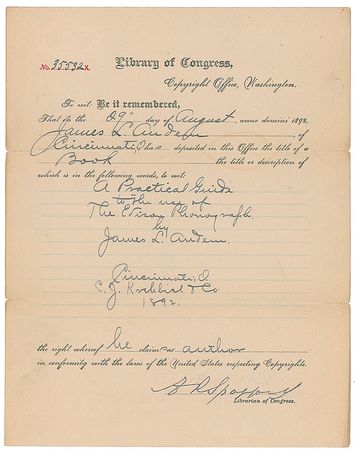 Library of Congress,
No. 35532 X.
Copyright Office, Washington.
To wit: Be it remembered,
That on the 29" day of August, anno domini 1892,
James L. Andem of
Cincinnati, O has deposited in this Office the title of a
Book the title or description of
which is in the following words, to wit:
A Practical Guide
to the use of
The Edison Phonograph.
by
James L. Andem.
Cincinnati, O
C. J. Krehbiel & Co
1892.
the right whereof he claims as author
in conformity with the laws of the United States respecting Copyrights.
A R Spofford
Librarian of Congress.